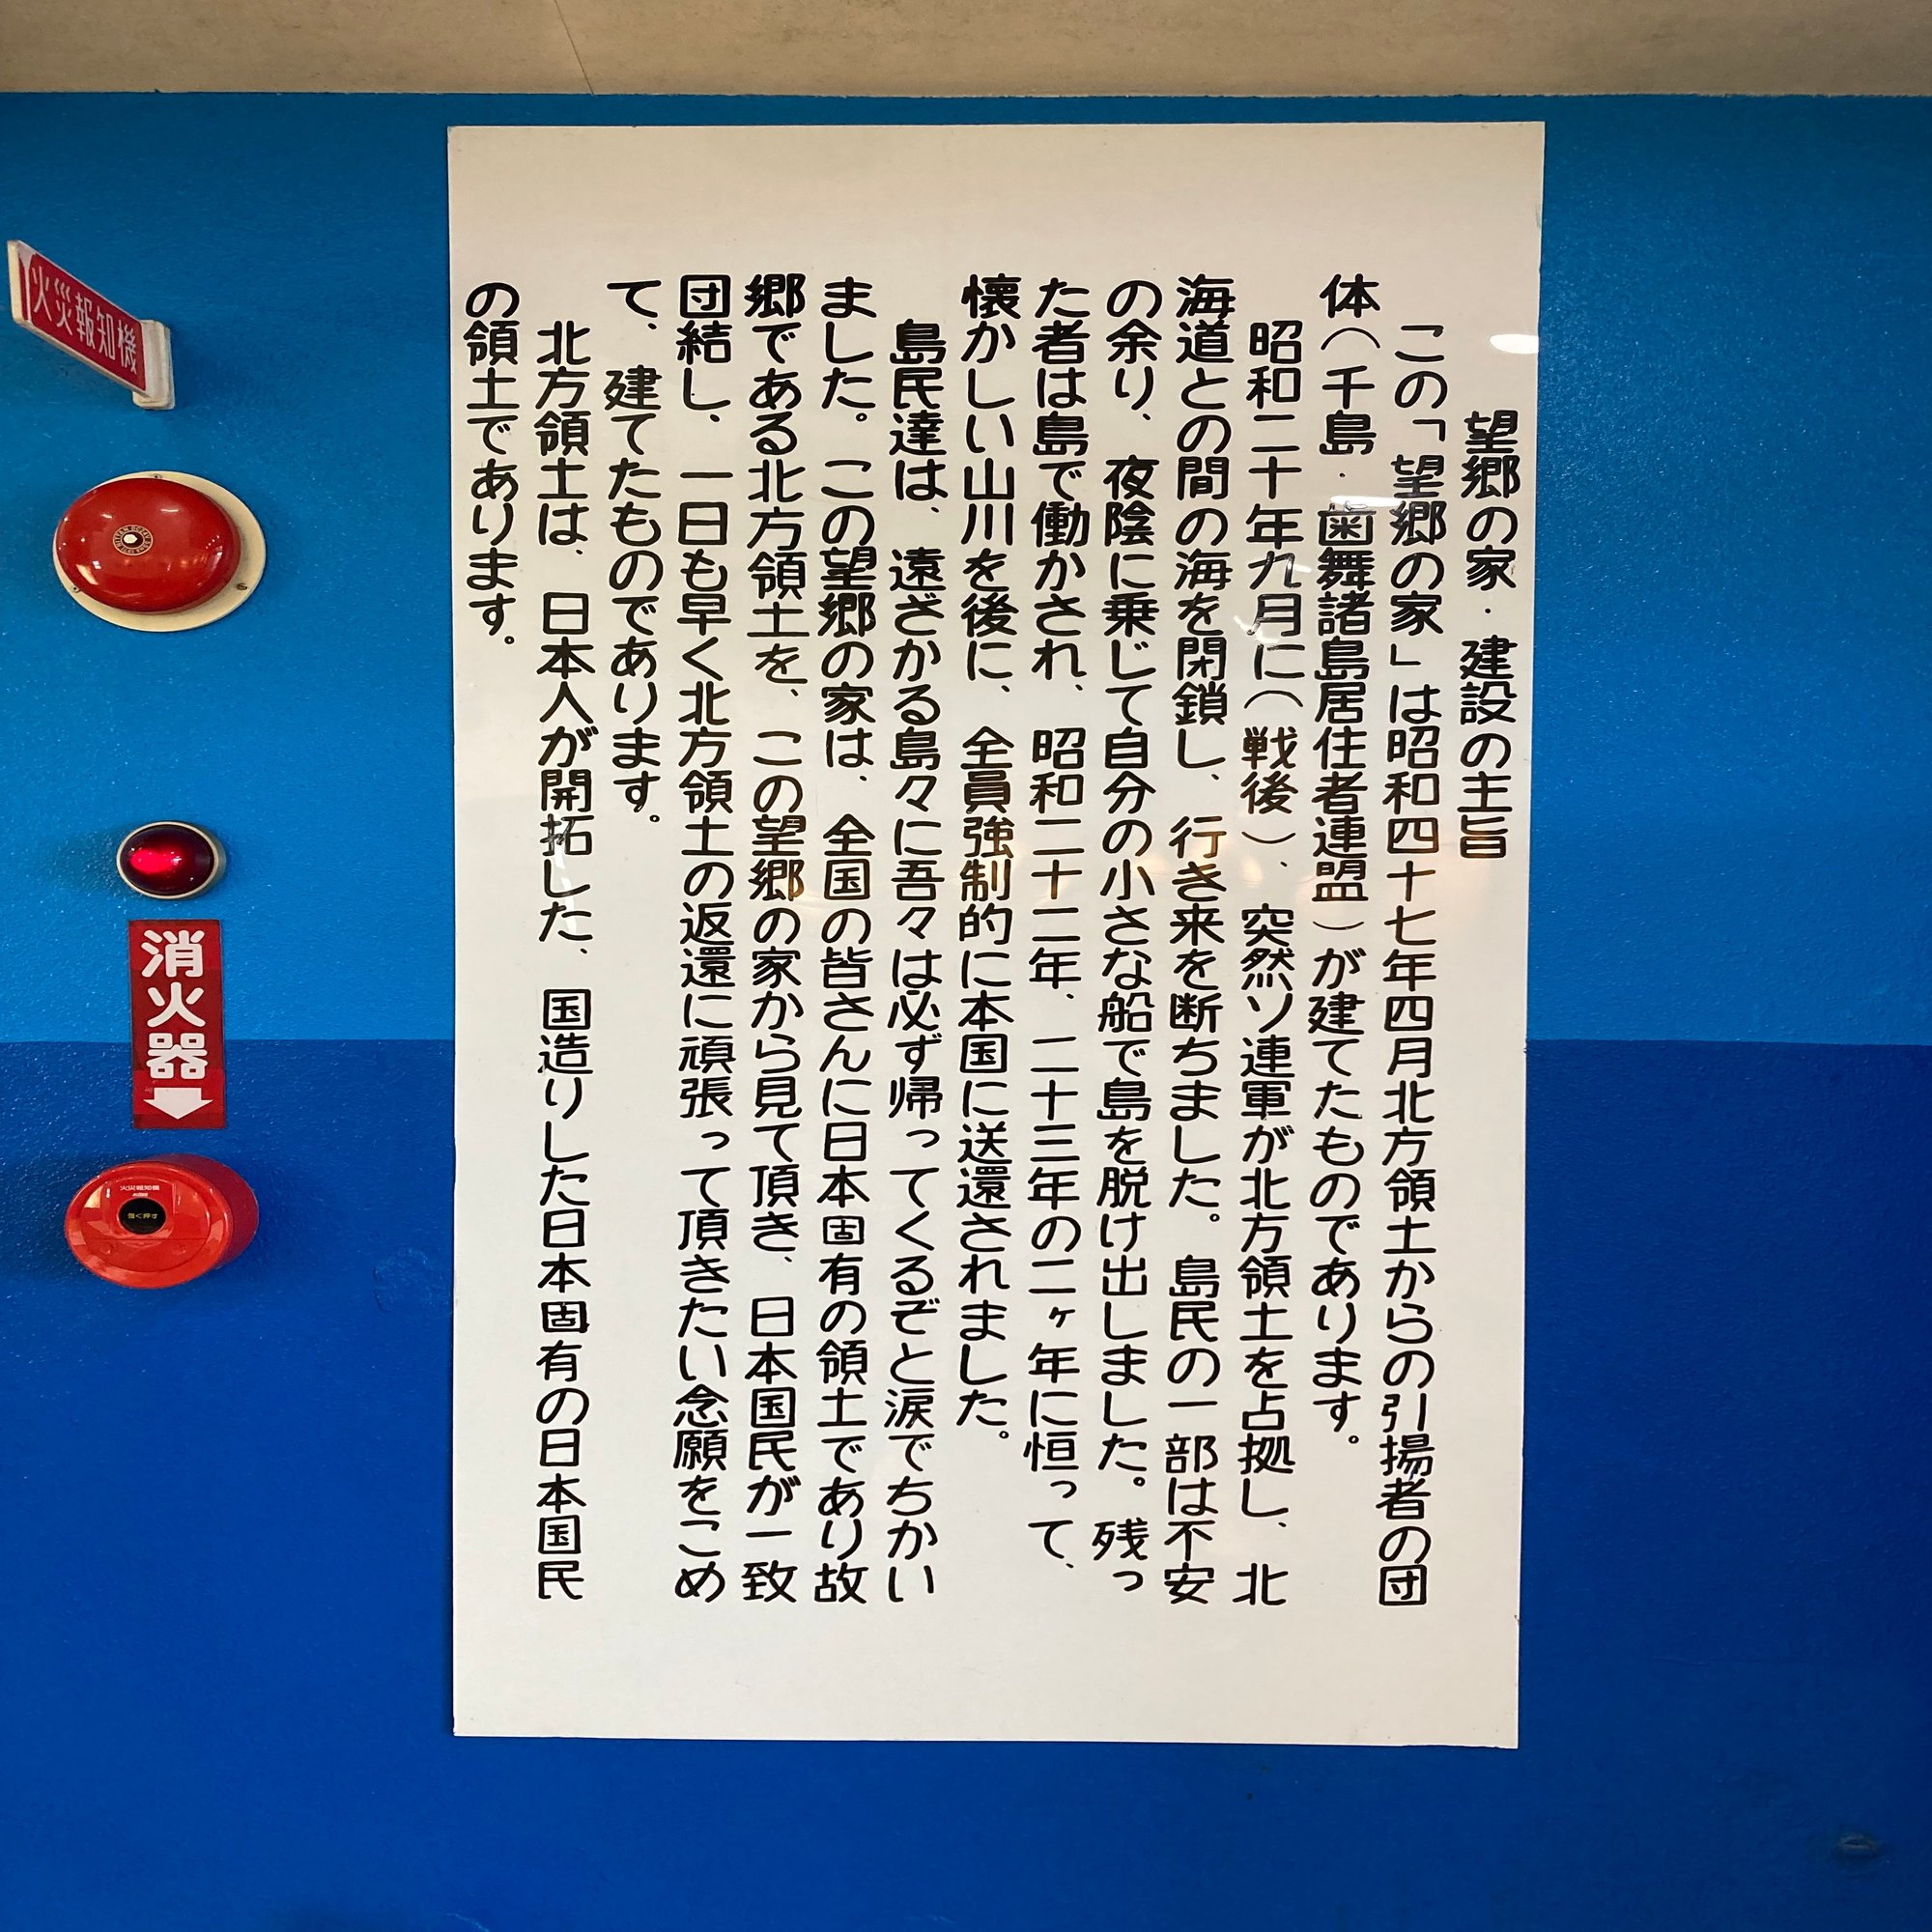 望郷の家・建設の主旨
この「望郷の家」は昭和四十七年四月北方領土からの引揚者の団
体(千島・歯舞諸島居住者連盟)が建てたものであります。
昭和二十年九月に(戦後)、突然ソ連軍が北方領土を占拠し、北
海道との間の海を閉鎖し、行き来を断ちました。島民の一部は不安
の余り、夜陰に乗じて自分の小さな船で島を脱け出しました。残っ
た者は島で働かされ、昭和二十二年、二十三年の二ヶ年に恒って、
懐かしい山川を後に、全員強制的に本国に送還されました。
島民達は、遠ざかる島々に吾々は必ず帰ってくるぞと涙でちかい
ました。この望郷の家は、全国の皆さんに日本固有の領土であり故
郷である北方領土を、この望郷の家から見て頂き、日本国民が一致
団結し、一日も早く北方領土の返還に頑張って頂きたい念願をこめ
て、建てたものであります。
北方領土は、日本人が開拓した、国造りした日本固有の日本国民
の領土であります。
火災報知機
消火器
火災報知機
強く押す